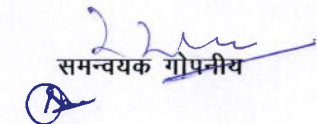 समन्वयक गोपनीय